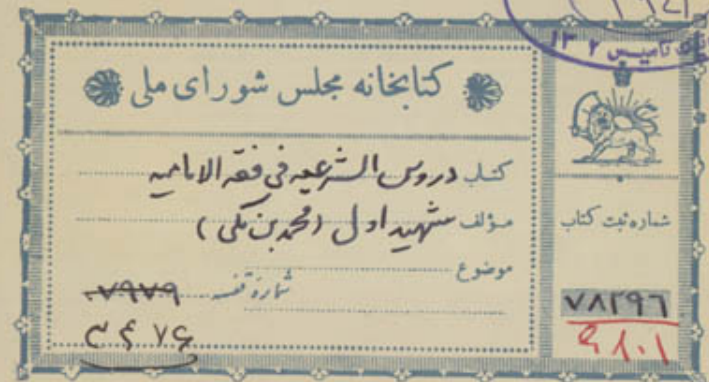 کتابخانه مجلس شورای ملی
کتاب دروس الشرعیه فی فقه الامامیه
مؤلف شهید اول (محمد بن مکی)
موضوع
شماره قفسه ۷۹۷۹
۳۴۷۶
شماره ثبت کتاب
۷۸۲۹۶
تاسیس ۱۳۰۲